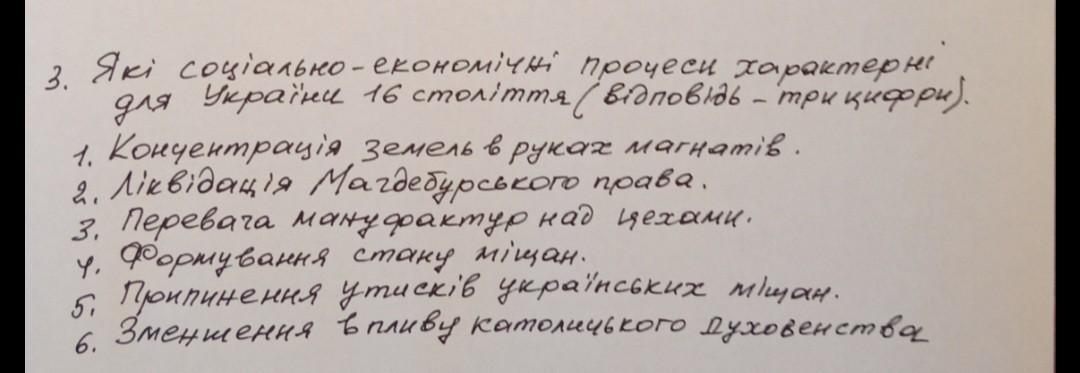 3. Які соціально-економічні процеси характерні
для України 16 століття (відповідь – три цифри).
1. Концентрація земель в руках магнатів.
2. Ліквідація Магдебурського права.
3. Перевага мануфактур над цехами.
4. Формування стану міщан.
5. Припинення утисків українських міщан.
6. Зменшення впливу католицького духовенства